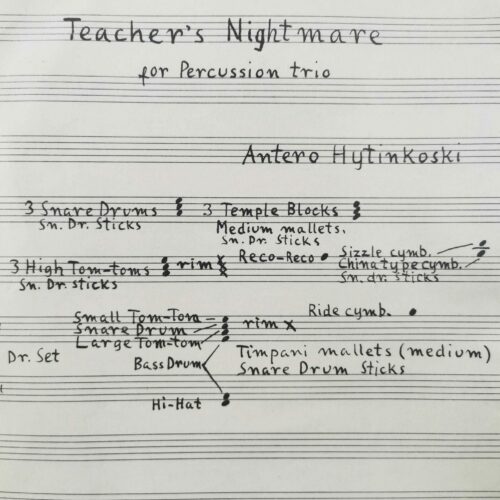 Teacher's Nightmare
for Percussion trio
Antero Hytinkoski
3 Snare Drums
Sn. Dr. Sticks
3 Temple Blocks
Medium mallets.
Sn. Dr. Sticks
3 High Tom-toms
Sn. Dr. sticks
rim
Reco-Reco
Sizzle cymb.
China type cymb.
Sn. dr. sticks
Small Tom-Tom
Snare Drum
Large Tom-tom
rim x
Ride cymb.
Dr. Set
Bass Drum
Timpani mallets (medium)
Snare Drum Sticks
Hi-Hat